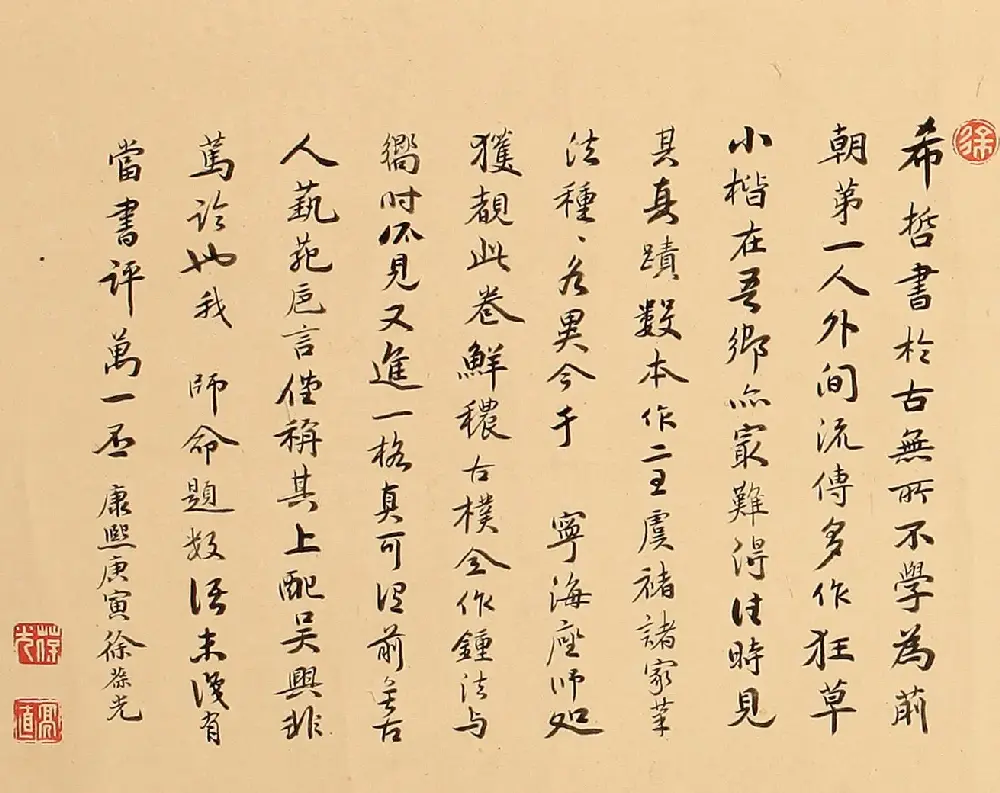 徐
希哲書於古無所不學為前
朝第一人外间流傳多作狂草
小楷在吾鄉亦最難得往時見
其真蹟數本作二王虞褚諸家筆
法種〻各異今于 寧海座師処
獲覩此卷鮮穠古樸全作鍾法与
嚮时所見又進一格真可谓前無古
人藝苑巵言僅稱其上配吳興非
篤论也我 师命題数语未識有
當書評萬一否 康熙庚寅徐葆光
葆光
亮直